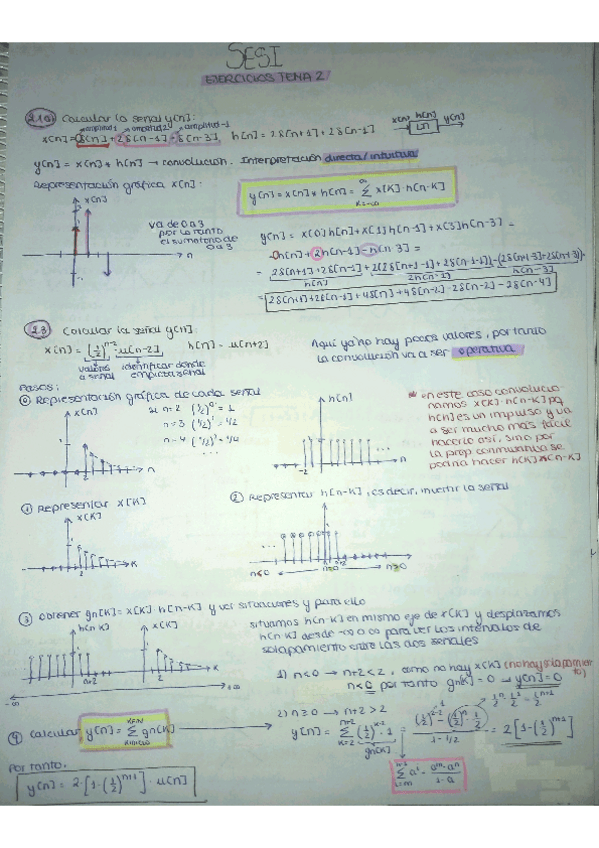 SESI
EJERCICIOS TEMA 2
2.1a) Calcular la señal y[n]:
amplitud 1 amplitud 2 amplitud -1
x[n] = δ[n] + 2δ[n-1] - δ[n-3] h[n] = 2δ[n+1] + 2δ[n-1]
x[n] h[n] y[n]
y[n] = x[n] * h[n] → convolución. Interpretación directa/intuitiva
Representación gráfica x[n]:
y[n] = x[n] * h[n] = Σ x[k]·h[n-k]
x[n]
va de 0 a 3
por lo tanto
el sumatorio de
0 a 3
n
y[n] = x[0]h[n] + x[1]h[n-1] + x[3]h[n-3] =
= h[n] + 2h[n-1] - h[n-3] =
= 2δ[n+1] + 2δ[n-1] + 2(2δ[n+1-1] + 2δ[n-1-1]) - (2δ[n+1-3] + 2δ[n-1-3]) =
h[n] 2h[n-1] h[n-3]
= 2δ[n+1] + 2δ[n-1] + 4δ[n] + 4δ[n-2] - 2δ[n-2] - 2δ[n-4]
2.3 Calcular la señal y[n]:
x[n] = (1/2)ⁿ⁻²·u[n-2] h[n] = u[n+2]
valores a señal
identificar donde empieza señal
Aquí ya no hay pocos valores, por tanto
la convolución va a ser operativa
Pasos:
⓪ Representación gráfica de cada señal
x[n]
si n=2 (1/2)⁰ = 1
n=3 (1/2)¹ = 1/2
n=4 (1/2)² = 1/4
...
n
h[n]
-2
n
* en este caso convolucio-
namos x[k]·h[n-k] pq
h[n] es un impulso y va
a ser mucho más fácil
hacerlo así, sino por
la prop conmutativa se
podría hacer h[k]·x[n-k]
① Representar x[k]
x[k]
2
k
② Representar h[n-k], es decir, invertir la señal
h[n-k]
n<0 n=0 n+2 n>0
③ Obtener gn[k] = x[k]·h[n-k] y ver situaciones y para ello
situamos h[n-k] en mismo eje de x[k] y desplazamos
h[n-k] desde -∞ a ∞ para ver los intervalos de
solapamiento entre las dos señales
h[n-k] x[k]
n+2 2 k
-∞ +∞
1) n<0 → n+2<2, como no hay x[k] (no hay solapamiento)
n<0 por tanto gn[k] = 0 → y[n] = 0
2) n≥0 → n+2>2
④ Calcular y[n] = Σ gn[k]
y[n] = Σ (1/2)ᵏ⁻²·1 = = 2[1-(1/2)ⁿ⁺¹]
gn[k] 1-1/2
Por tanto:
y[n] = 2·[1-(1/2)ⁿ⁺¹]·u[n]